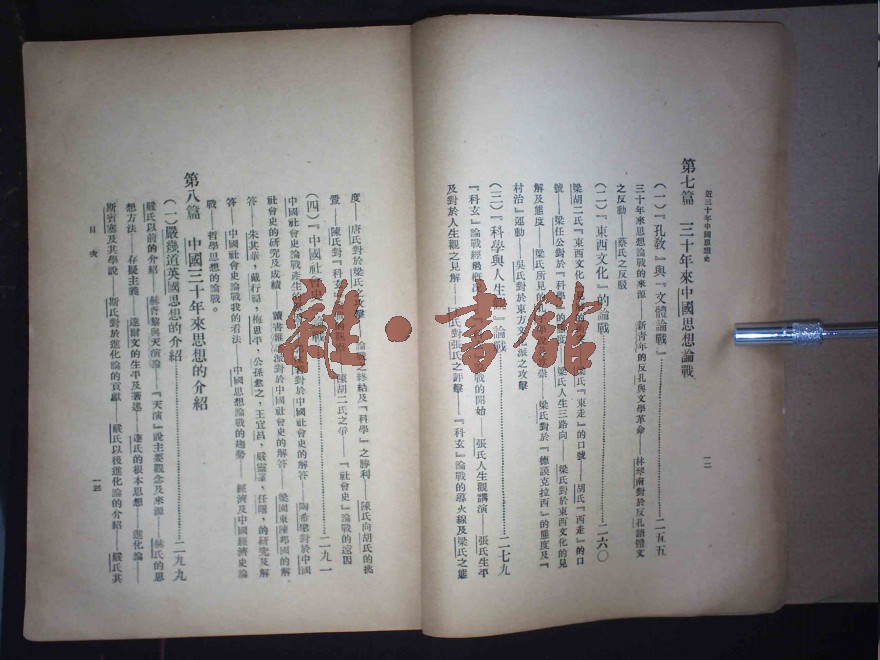 近三十年中國思想史
一二
第七篇 三十年來中國思想論戰
(一)『孔教』與『文體論戰』……二五五
三十年來思想論戰的來源——新青年的反孔與文學革命——林琴南對於反孔語體文
之反動——蔡氏之反駁
(二)『東西文化』的論戰……二六〇
梁胡二氏『東西文化』 氏『東走』的口號——胡氏『西走』的口
號——梁任公對於『科學 度——梁氏人生三路向——梁氏對於東西文化的見
解及態度——梁氏所見的孔 梁氏對於『德謨克拉西』的態度及『
村治』運動——吳氏對於東方文 派之攻擊
(三)『科學與人生觀』論戰……二七九
『科玄』論戰經過概 戰的開始——張氏人生觀講演——張氏生平
及對於人生觀之見解 氏對於張氏之評擊——『科玄』論戰的導火線及梁氏之態
度——唐氏對於梁氏之攻擊 論戰之終結及『科學』之勝利——陳氏向胡氏的挑
釁——陳氏對『科 陳胡二氏之爭——『社會史』論戰的遠因
(四)『中國社會史 戰……二九一
中國社會史論戰產生的 對於中國社會史的解答——陶希聖對於中國
社會史的研究及成績——讀書雜誌派對於中國社會史的解答——梁園東陳邦國的解
答——朱其華,戴行軺,梅思平,公孫愈之,王宜昌,嚴靈峯,任曙,的研究及解
答——中國社會史論戰我的看法——中國思想論戰的趨勢——經濟及中國經濟史論
戰——哲學思想的論戰。
第八篇 中國三十年來思想的介紹
(一)嚴幾道英國思想的介紹……二九九
嚴氏以前的介紹——赫胥黎與天演論——『天演』說主要觀念及來源——赫氏的思
想方法——存疑主義——達爾文的生平及著述——達氏的根本思想——進化論——
斯賓塞及其學說——斯氏對於進化論的貢獻——嚴氏以後進化論的介紹——嚴氏其
目次
一三
雜·書館